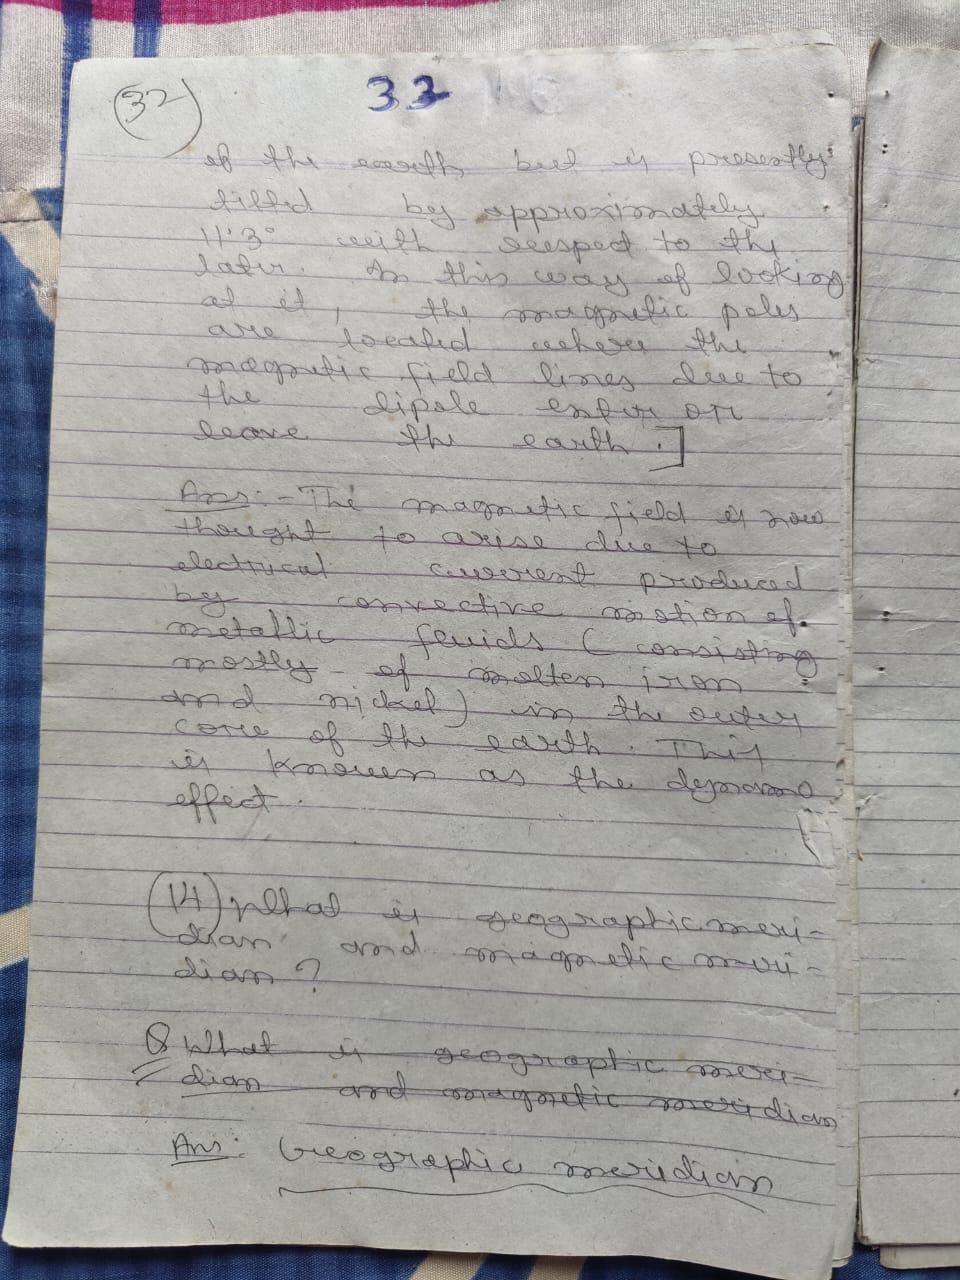 32
33
of the earth but is presently
tilted by approximately
11.3° with respect to the
later. In this way of looking
at it, the magnetic poles
are located where the
magnetic field lines due to
the dipole enter or
leave the earth.]
Ans:- The magnetic field is now
thought to arise due to
electrical current produced
by convective motion of
metallic fluids (consisting
mostly of molten iron
and nickel) in the outer
core of the earth. This
is known as the dynamo
effect.
(14) What is geographic meri-
dian and magnetic meri-
dian?
Q What is geographic meri-
dian and magnetic meridian
Ans: Geographic meridian